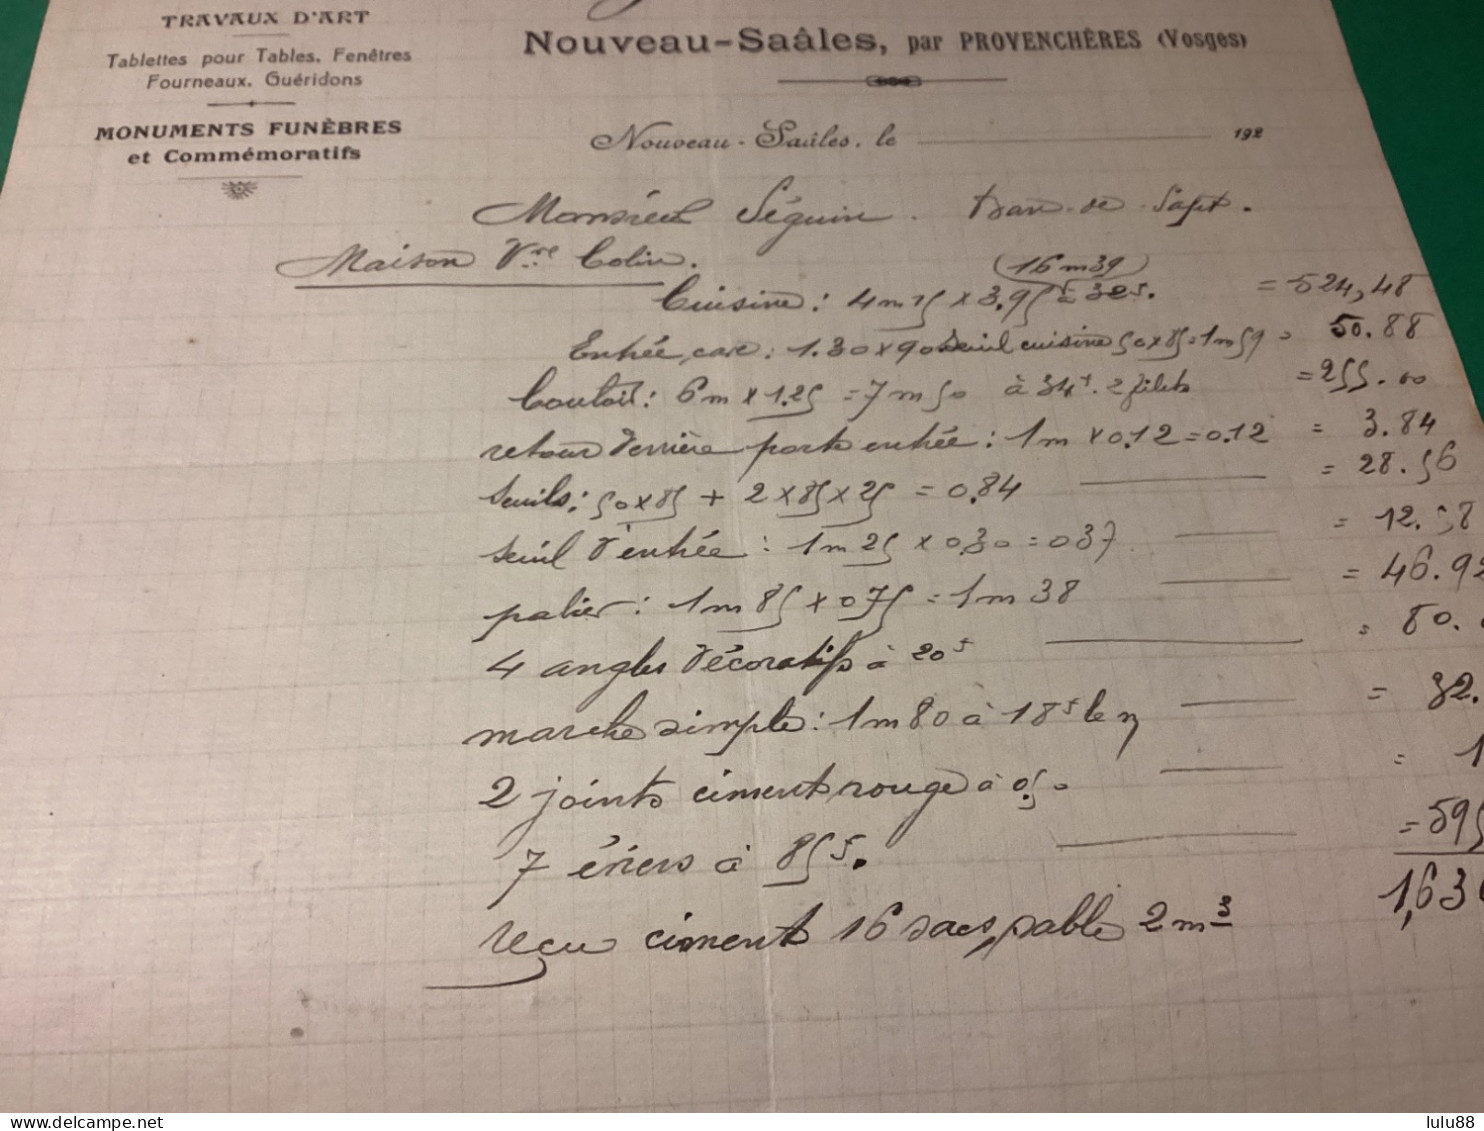 TRAVAUX D'ART
Tablettes pour Tables, Fenêtres
Fourneaux, Guéridons
MONUMENTS FUNÈBRES
et Commémoratifs
Nouveau-Saâles, par PROVENCHÈRES (Vosges)
Nouveau-Saâles, le 192
Monsieur Séguin. Ban-de-Sapt.
Maison Vve Colin.
(16m39)
Cuisine: 4m15 x 3.95 à 32f. = 524,48
Entrée, cave: 1.30x90 seuil cuisine 50x85=1m59 = 50.88
Couloir: 6m x 1.25 = 7m50 à 34f. 2 filets = 255.00
retour derrière porte entrée: 1m x 0.12 = 0.12 = 3.84
Seuils: 50x85 + 2x85x25 = 0.84 = 28.56
seuil d'entrée: 1m25 x 0.30 = 037 = 12.58
palier: 1m85 x 075 = 1m38 = 46.92
4 angles décoratifs à 20f = 80.
marche simple: 1m80 à 18f le m = 32.
2 joints ciment rouge à 0.50 = 1
7 éviers à 85f. = 595
1,63
reçu ciment 16 sacs, sable 2m3
lulu88
delcampe.net